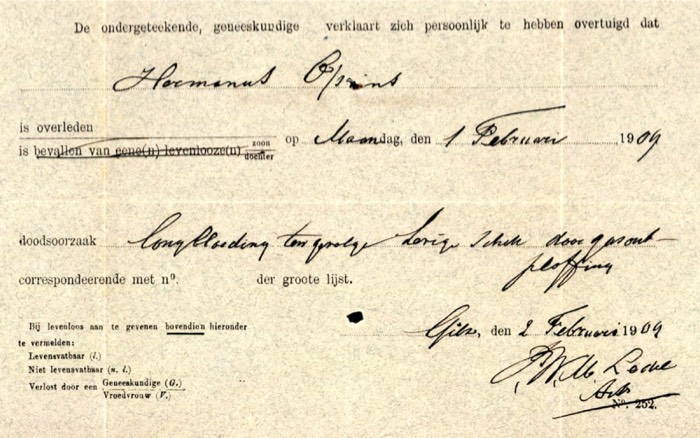 De ondergeteekende, geneeskundige verklaart zich persoonlijk te hebben overtuigd dat
Hermanus
is overleden
is bevallen van eene(n) levenlooze(n) zoon dochter op Maandag, den 1 Februari 1909
doodsoorzaak longbloeding tengevolge hevige schok door gasont-
ploffing
correspondeerende met nº. der groote lijst.
Gilze, den 2 Februari 1909
Bij levenloos aan te gevenen bovendien hieronder
te vermelden:
Levensvatbaar (l.)
Niet levensvatbaar (n. l.)
Verlost door een Geneeskundige (G.)
Vroedvrouw (V.)
Arts
Nº. 252.